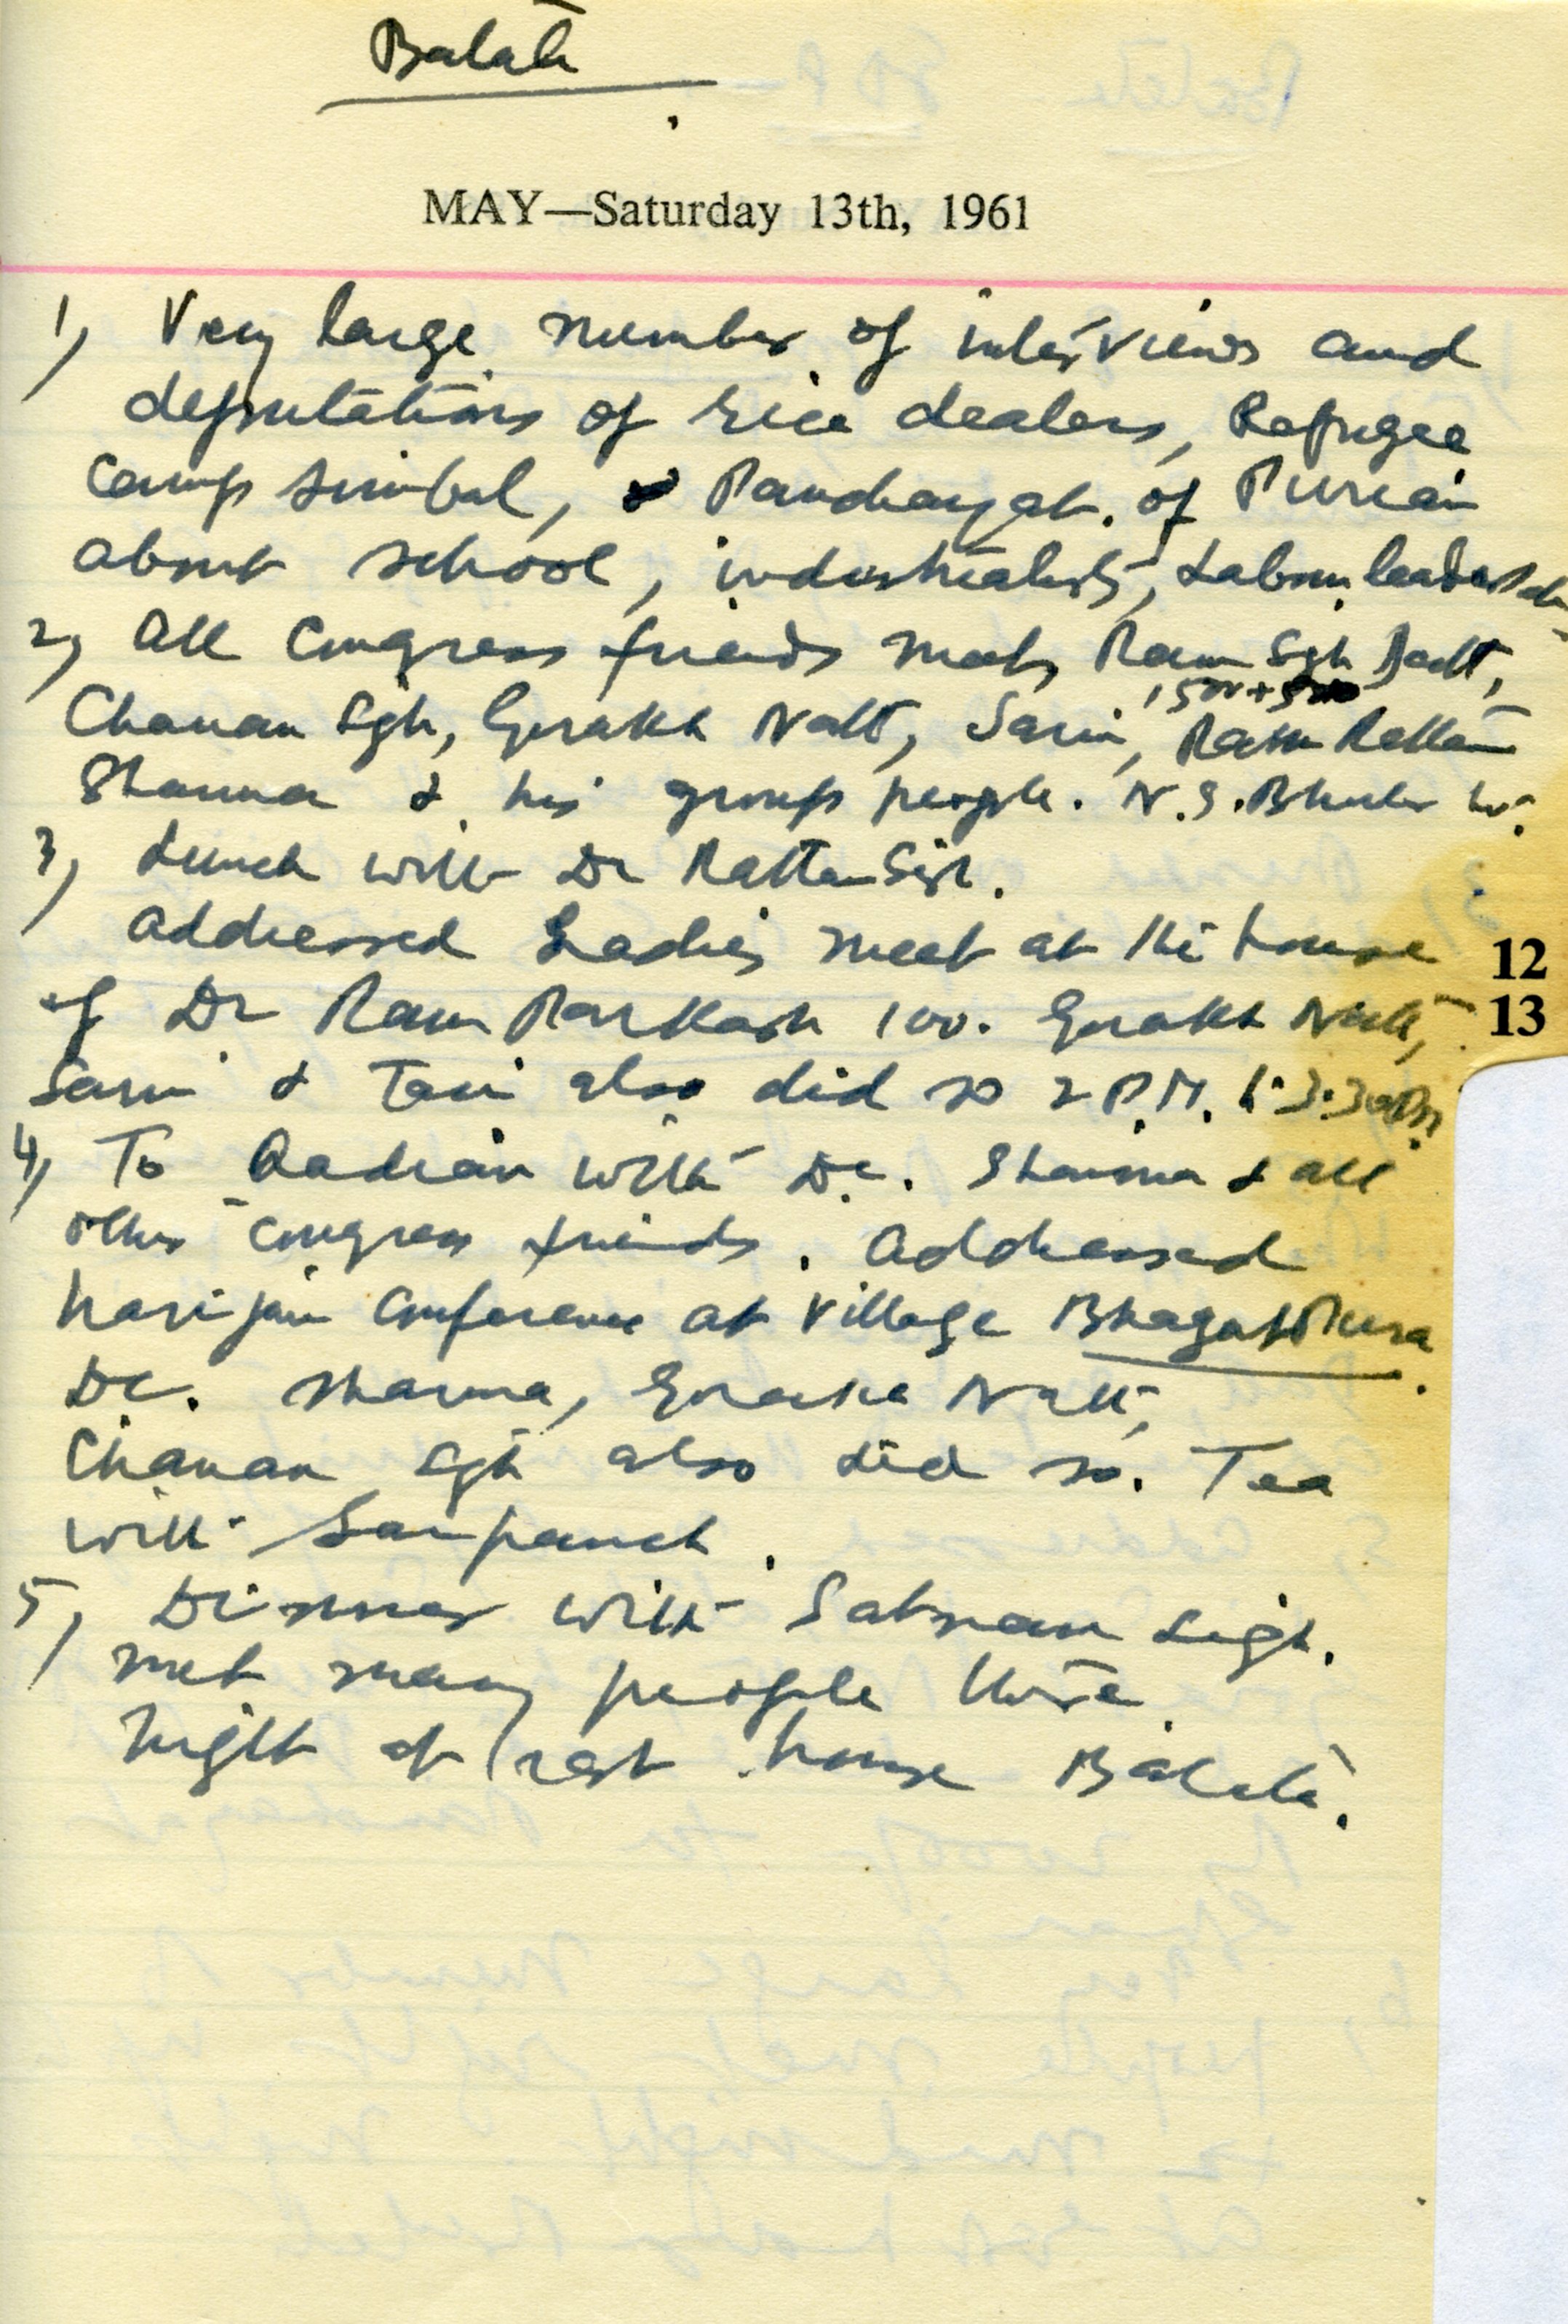 Batala
MAY—Saturday 13th, 1961
1) Very large number of interviews and
deputations of rice dealers, Refugee
camp Simbal, Panchayat of Purian
about school, industrialists, Labour leaders
2) All Congress friends meet, Ram Sgh Dutt,
1500+500
Chanan Sgh, Gorakh Nath, Sarin, Ram Rattan
Sharma & his group people. N.S. Bhuler
3) Lunch with Dr Rattan Sigh.
Addressed Ladies meet at the house
12
of Dr Ram Parkash 100. Gorakh Nath,
13
Sarin & Tari also did so 2 P.M. to 3.30 PM
4) To Qadian with D.C. Sharma & all
other Congress friends. Addressed
harijan Conference at village Bhagatpura
DC. Sharma, Gorakh Nath,
Chanan Sgh also did so. Tea
with Sarpanch.
5) Dinner with Satnam Sigh.
met many people there
Night at rest house Batala.